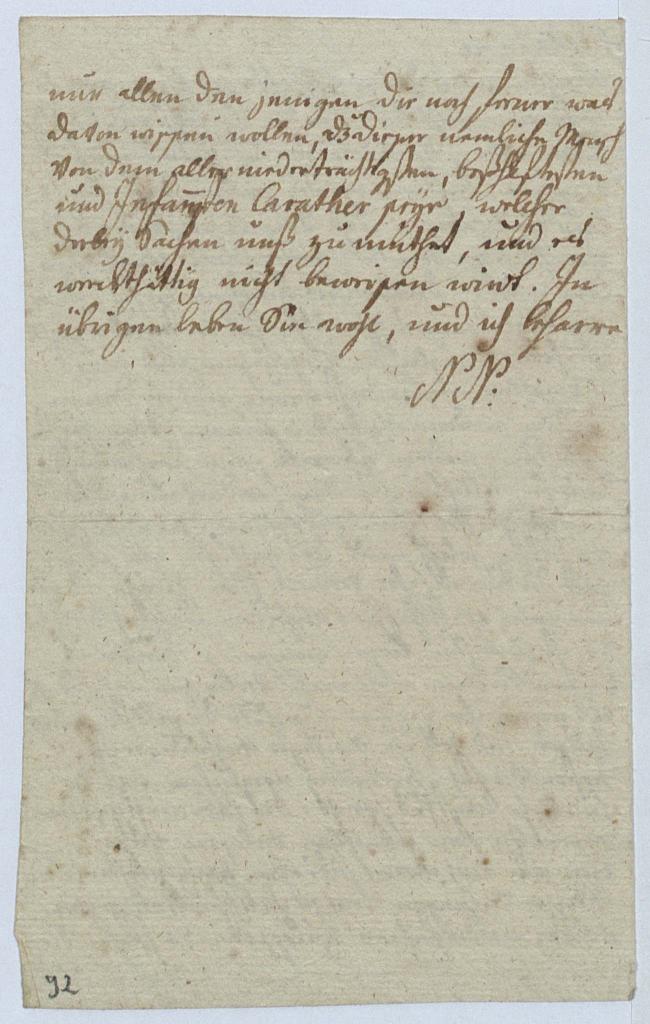 nur allen den jenigen die noch ferner was
davon wissen wollen, dz dieser nemliche Mensch
von dem aller niederträchtigsten, boßhafftesten
und Infamsten Carather seye, welcher
derley Sachen unß zu muthet, und es
werckthättig nicht beweisen wird. Im
übrigen leben Sie wohl, und ich beharre
NN:
92